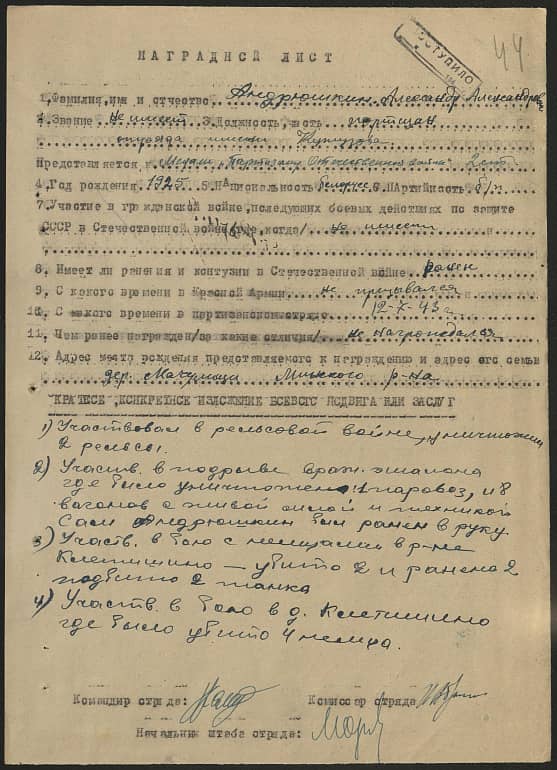 44.
ПОСТУПИЛО
НАГРАДНОЙ ЛИСТ
1.Фамилия,имя и отчество Андрюшкин Александр Александрович
2.Звание не имеет 3.Должность,часть партизан
отряда имени Кутузова
Представляется к Медали "партизану Отечественной войны" 2 ст.
4.Год рождения 1925 5.Национальность белорус 6.Партийность б/п
7.Участие в гражданской войне,последующих боевых действиях по защите
СССР в Отечественной войне /где,когда/ не имеет
8. Имеет ли ранения и контузии в Отечественной войне ранен
9. С какого времени в Красной Армии не призывался
10. С какого времени в партизанском отряде 12-X-43 г.
11. Чем ранее награжден/за какие отличия/ не награждался
12. Адрес места рождения представляемого к награждению и адрес его семьи
дер. Мачулищи Минского р-на
КРАТКОЕ ,КОНКРЕТНОЕ ИЗЛОЖЕНИЕ БОЕВОГО ПОДВИГА ИЛИ ЗАСЛУГ
1) Участвовал в рельсовой войне, уничтожил
2 рельсы.
2) Участв. в подрыве враж. эшалона
где было уничтожено 1 паровоз, и 8
вагонов с живой силой и техникой
Сам Андрюшкин был ранен в руку.
3) Участв. в бою с немцами в р-не
Клетишино – убито 2 и ранено 2
подбито 2 танка
4) Участв. в бою в д. Клетишино
где было убито 4 немца.
Командир отряда:
Комиссар отряда
Начальник штаба отряда: